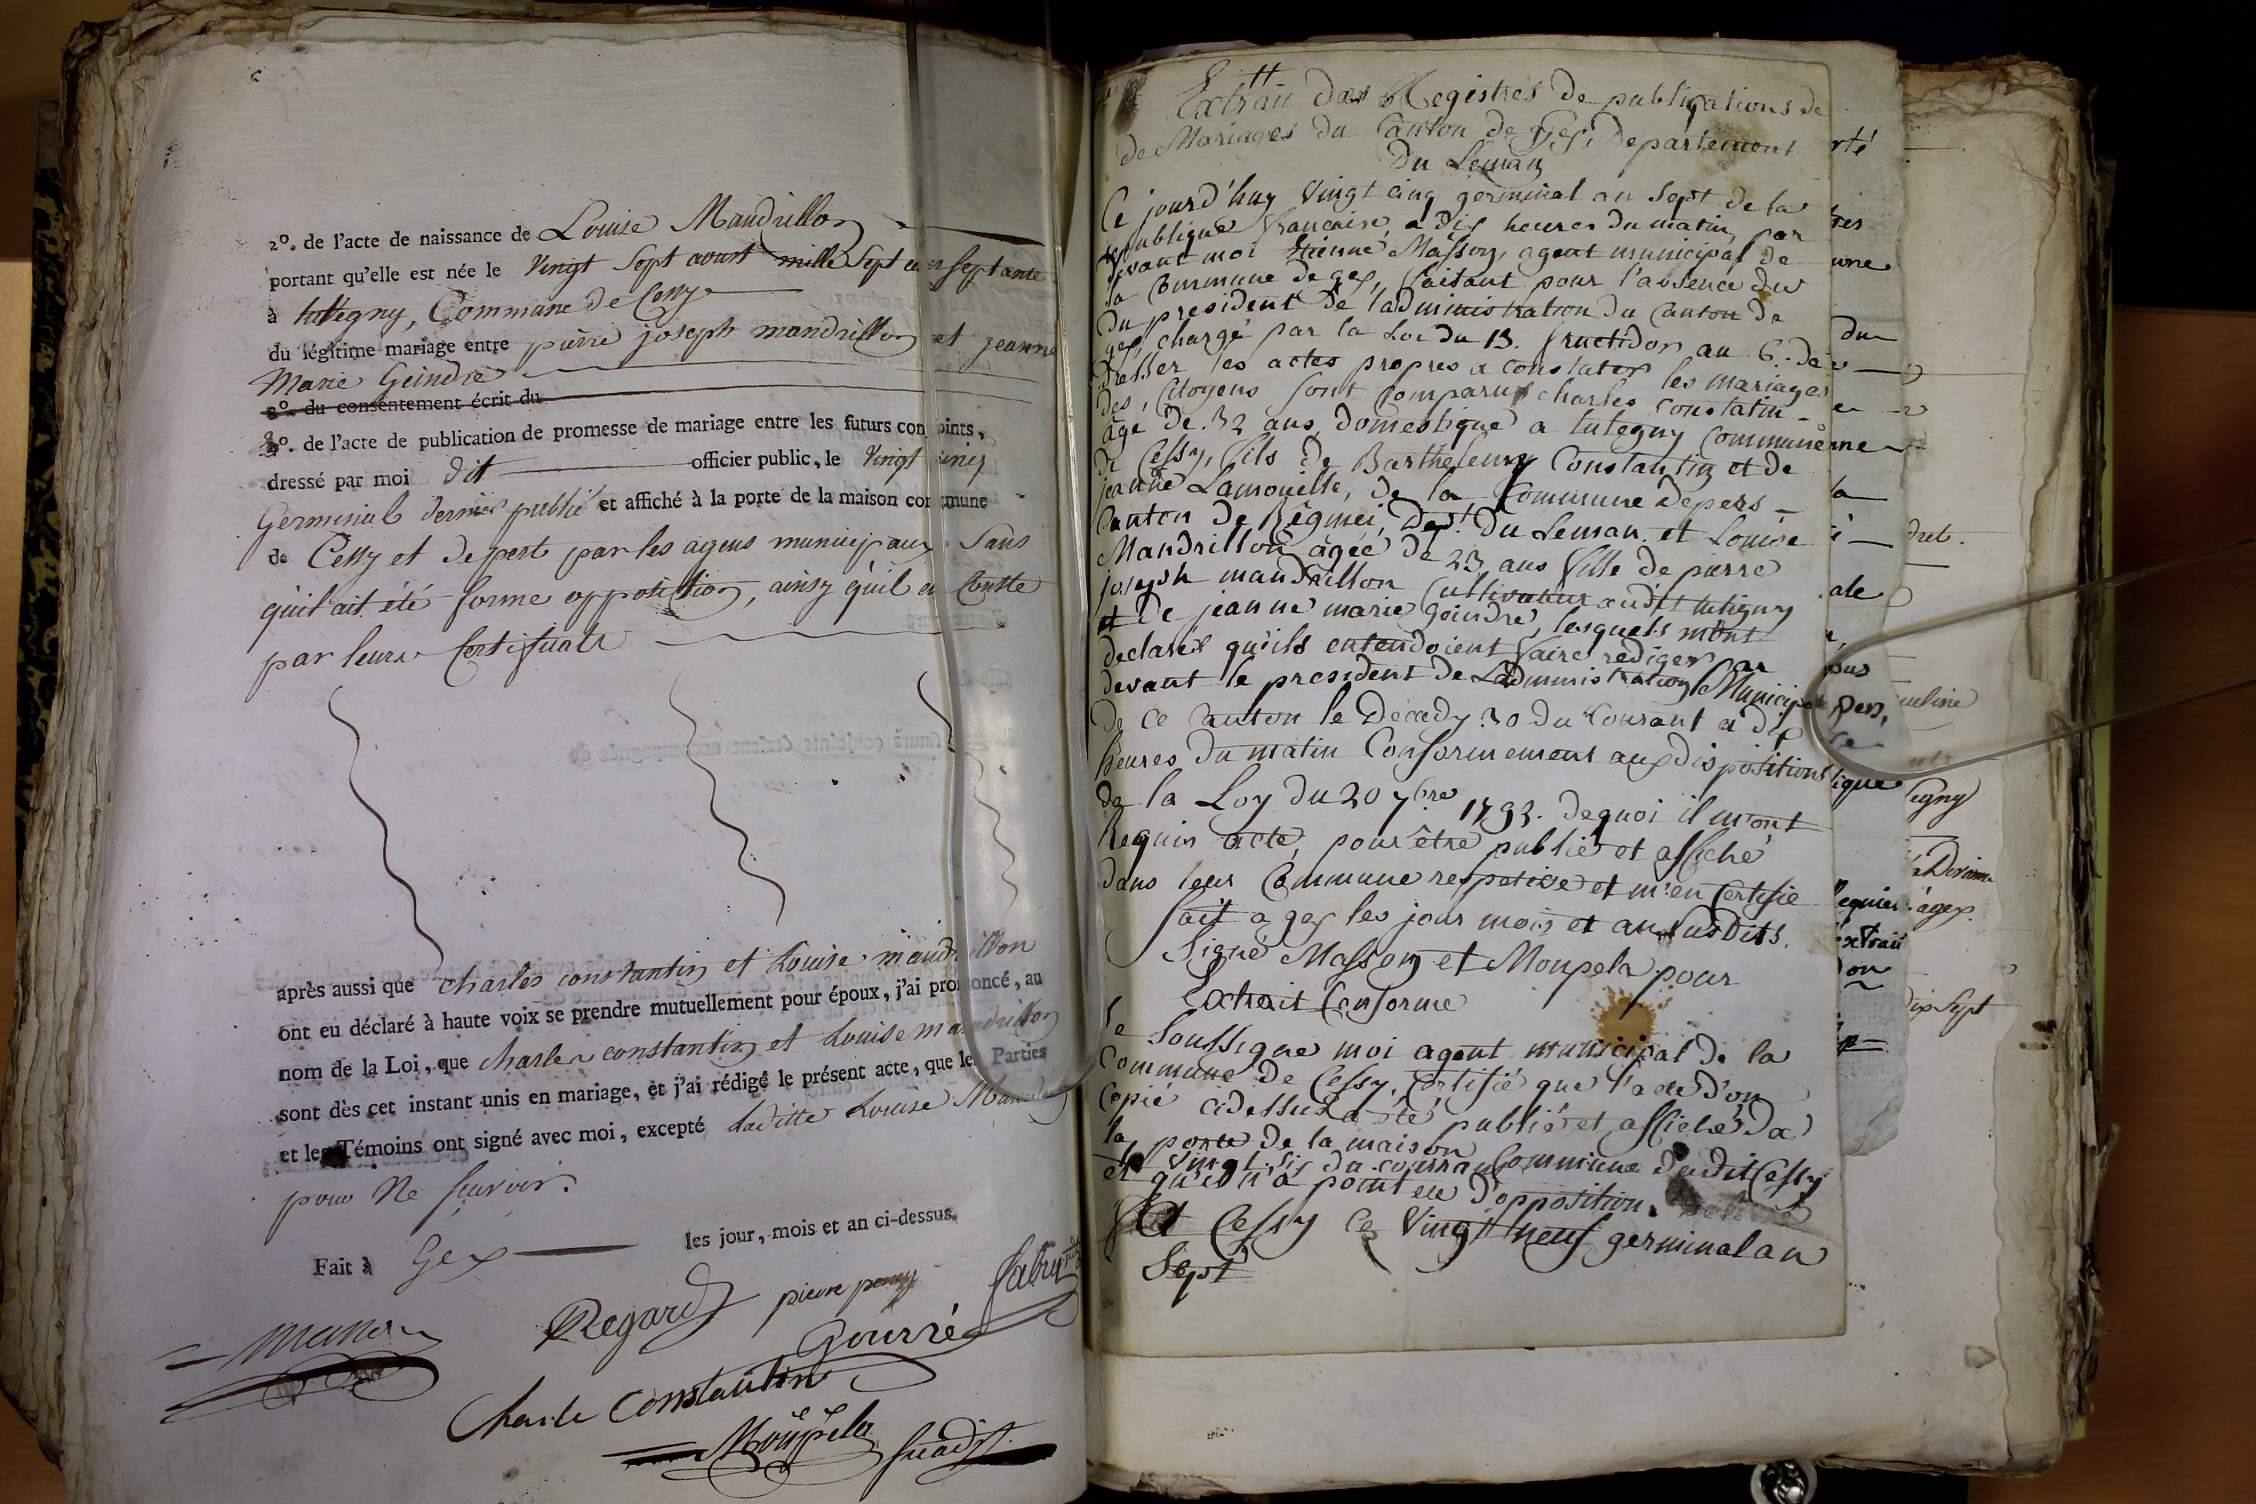 2º. de l'acte de naissance de Louise Mandrillon
portant qu'elle est née le vingt sept aoust mille sept cen septante
à tuttegny, Commune de Cessy
du légitime mariage entre pierre joseph mandrillon et jeanne
Marie Geindre
2º. du consentement écrit du
3º. de l'acte de publication de promesse de mariage entre les futurs conjoints,
dressé par moi dit officier public, le Vingt cinq
Germinal dernier publié et affiché à la porte de la maison commune
de Cessy et de pert par les agens municipaux sans
qu'il ait été formé oppotition, ainsy qu'il en Conste
par leurs Certificats
après aussi que charles constantin et Louise mandrillon
ont eu déclaré à haute voix se prendre mutuellement pour époux, j'ai prononcé, au
nom de la Loi, que charles constantin et Louise mandrillon
sont dès cet instant unis en mariage, et j'ai rédigé le présent acte, que les Parties
et les Témoins ont signé avec moi, excepté laditte Louise Mandrillon
pour Ne scavoir.
Fait à Gex les jour, mois et an ci-dessus.
Regard pierre Fabry
Gourré
Charle Constantin
Moupela
Extrait des Registres de publications de
de Mariages du Canton de Gex, Departement
Du Leman
Ce jourd'huy Vingt cinq germinal an Sept de la
republique francaise, a dix heures du matin, par
devant moi Etienne Masson, agent municipal de
la Commune de gex, faisant pour l'absence du
du president de l'administration du Canton de
gex, chargé par la Loi du 13. fructidor an 6. de
dresser les actes propres a constater les mariages
des Citoyens sont comparus charles constatin
âgé de 32 ans, domestique a tutegny commune
de Cessy, fils de Barthelemy Constantin et de
jeanne Lamouille, de la Commune depers
Canton de Régnier, Dept. du Leman. et Louise
Mandrillon agée de 23 ans fille de pierre
joseph mandrillon Cultivateur audit tutigny
et de jeanne marie goindre, lesquels m'ont
declaré qu'ils entendoient faire rediger par
devant le president de Ladministration Municipale
de ce Canton le Decady 30 du Courant a dix
heures du matin Conformement aux dispositions
de la Loy du 20 7bre 1792. dequoi il m'ont
Requis acte, pour être publié et affiché
dans leur Commune respetive et m'en Certifie
fait a gex les jour mois et an susdits.
Signé Masson et Moupela pour
Extrait Conforme
Je Soussigne moi agent municipal de la
Commune de Cessy, Certifié que l'acte d'on
Copié cidessus a été publié et affiché da
la porte de la maison Commune dudit Cessy
et vingt six du courran
et qu'il n'a point eu d'opposition.
fait a Cessy ce Vingt neuf germinal an
Sept